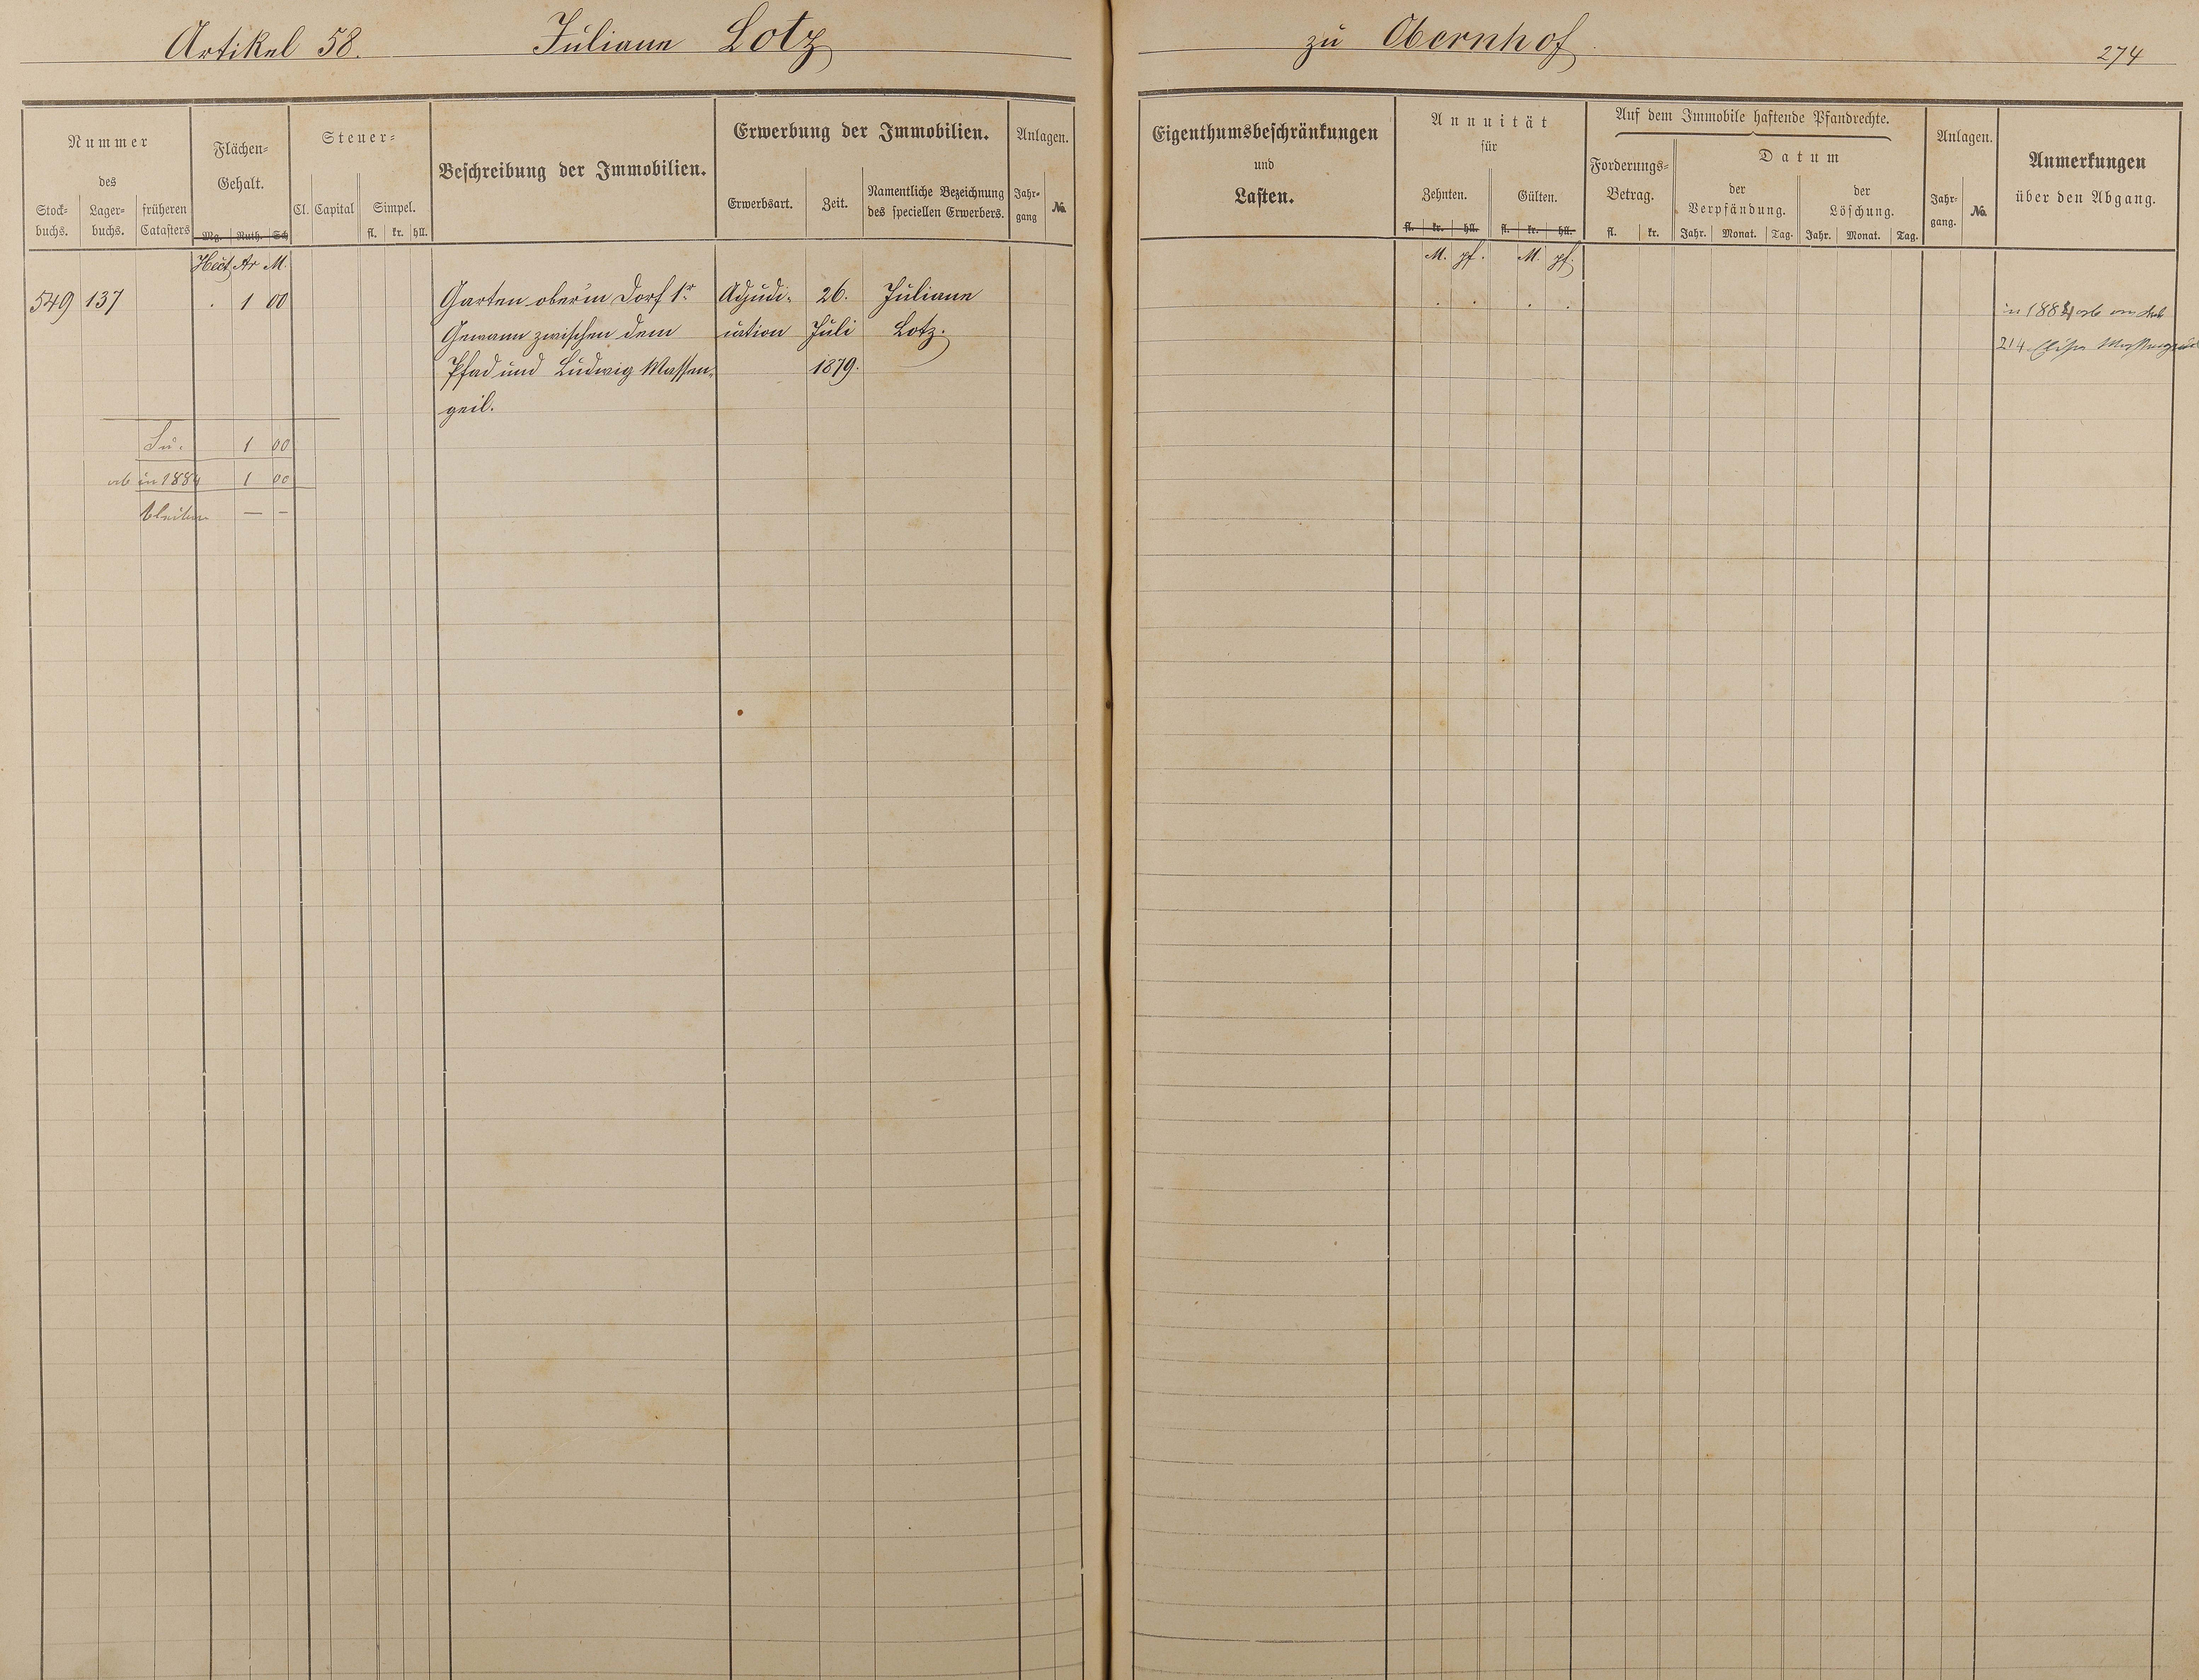 Artikel 58. Juliane Lotz zu Obernhof
274
Nummer
des
Stock-
buchs.
Lager-
buchs.
früheren
Catasters
Flächen-
Gehalt.
Mg. Ruth. Sch
Steuer-
Cl. Capital
Simpel.
fl. kr. hll.
Beschreibung der Immobilien.
Erwerbung der Immobilien.
Erwerbsart.
Zeit.
Namentliche Bezeichnung
des speciellen Erwerbers.
Anlagen.
Jahr-
gang
No.
Eigenthumsbeschränkungen
und
Lasten.
Annuität
für
Zehnten.
fl. kr. hll.
Gülten.
fl. kr. hll.
Auf dem Immobile haftende Pfandrechte.
Forderungs-
Betrag.
fl. kr.
Datum
der
Verpfändung.
Jahr. Monat. Tag.
der
Löschung.
Jahr. Monat. Tag.
Anlagen.
Jahr-
gang.
No.
Anmerkungen
über den Abgang.
Hect Ar M.
M. pf. M. pf.
549 137 . 1 00 Garten ober'm Dorf 1r Adjudi- 26. Juliane
Gewann zwischen dem cation Juli Lotz.
Pfad und Ludwig Massen- 1879.
geil.
in 1884 ab an Art
214
Su. 1 00
ab in 1884 1 00
bleiben — –